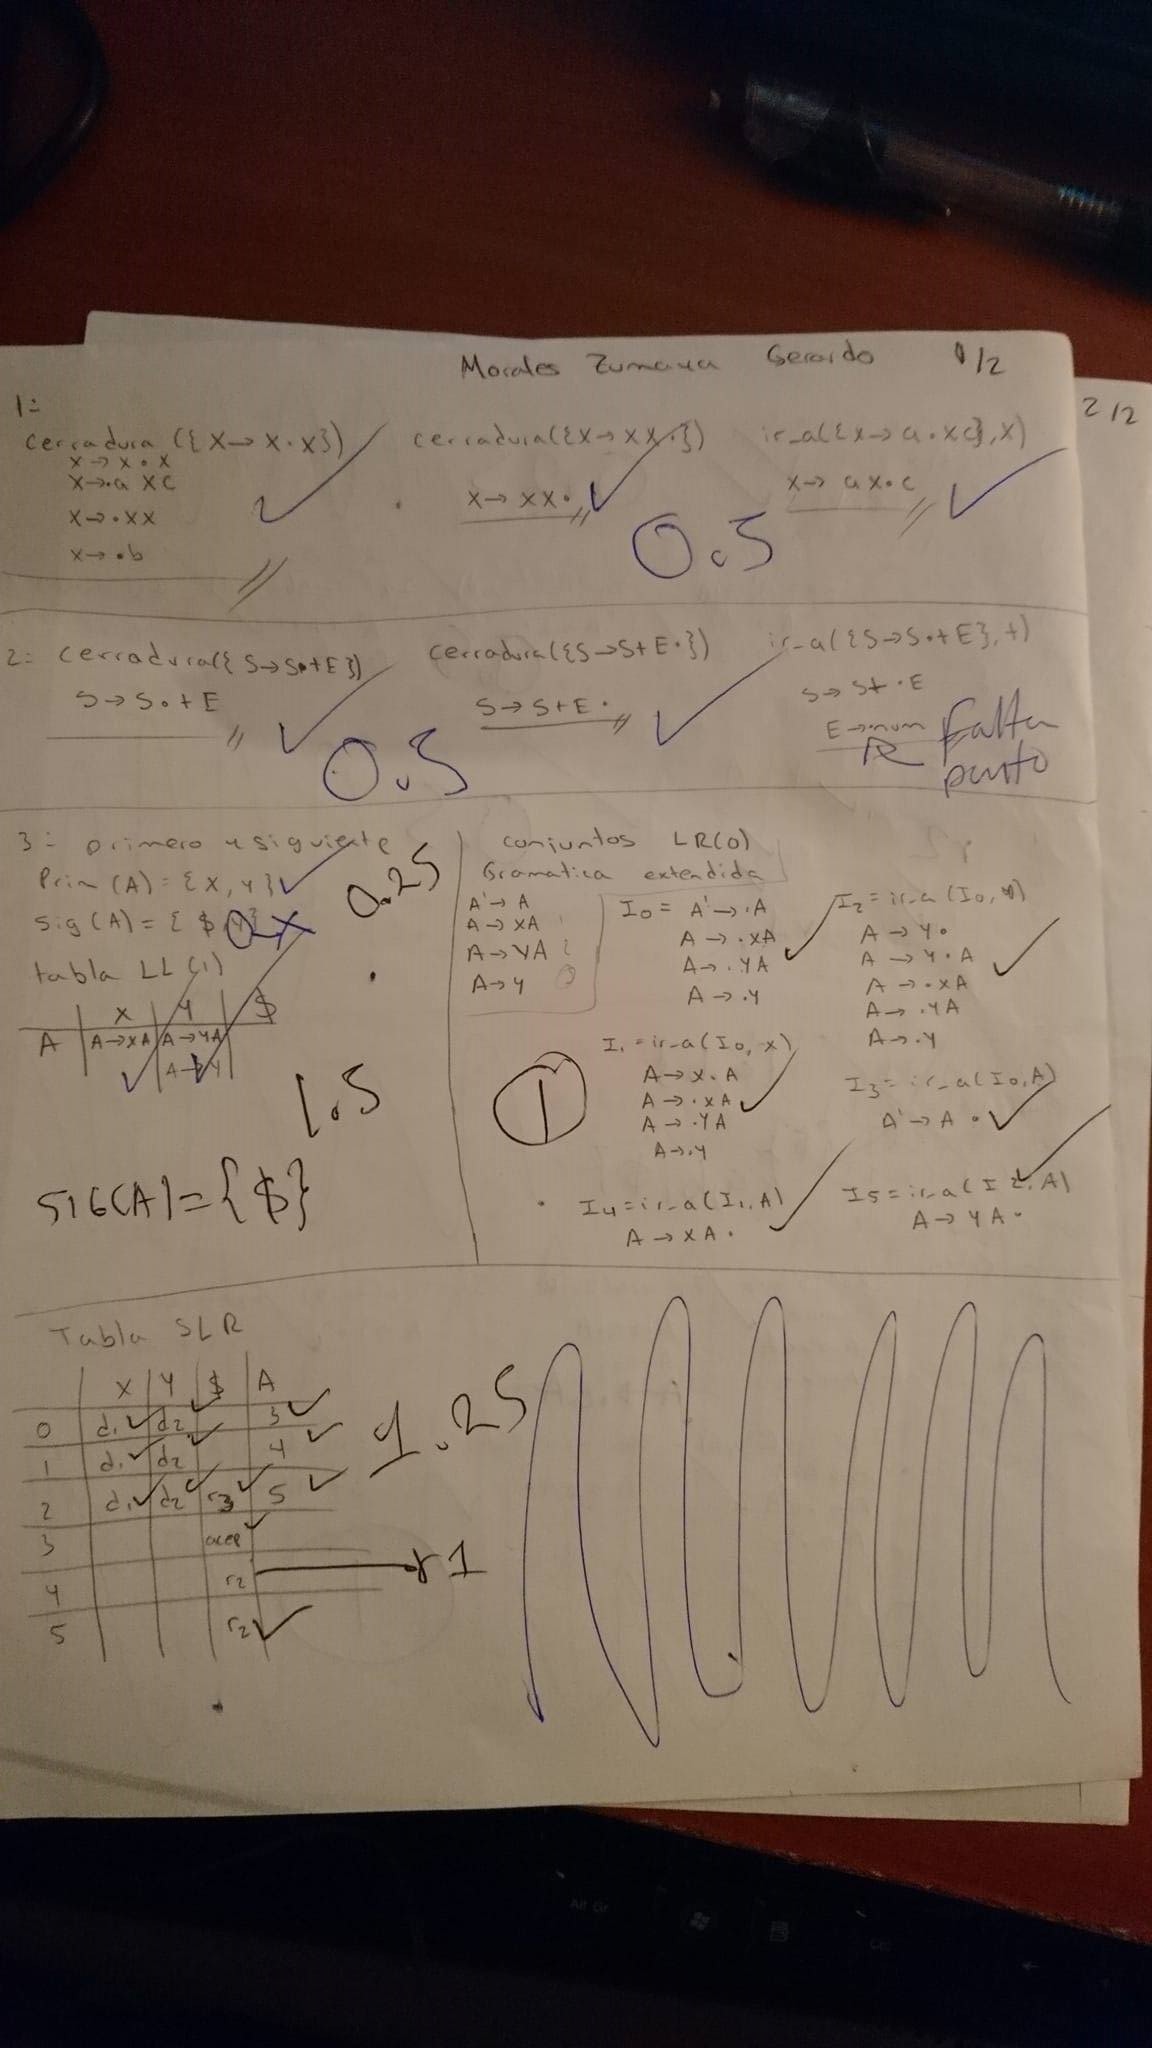 Morales Zumaya Gerardo 1/2
2/2
1:
cerradura ({X→X·X})
X→X·X
X→·a XC
X→·XX
X→·b
cerradura({X→XX·})
X→XX·
ir_a({X→a·XC},X)
X→ aX·C
0.5
2: cerradura({S→S·+E})
S→S·+E
cerradura({S→S+E·})
S→S+E·
ir_a({S→S·+E},+)
S→S+·E
E→·num
Falta
punto
0.5
3: primero y siguiente
Prim(A)={X,Y}
Sig(A)={$,Y}
0.25
tabla LL(1)
X Y $
A A→XA A→YA
A→Y
1.5
SIG(A)={$}
conjuntos LR(0)
Gramatica extendida
A'→A
A→XA 1
A→YA 2
A→Y
I0= A'→·A
A→·XA
A→·YA
A→·Y
I2=ir_a(I0,Y)
A→Y·
A→Y·A
A→·XA
A→·YA
A→·Y
I1=ir_a(I0,X)
A→X·A
A→·XA
A→·YA
A→·Y
1
I3=ir_a(I0,A)
A'→A·
I4=ir_a(I1,A)
A→XA·
I5=ir_a(I2,A)
A→YA·
Tabla SLR
X Y $ A
0 d1 d2 3
1 d1 d2 4
2 d1 d2 r3 5
3 acep
4 r2 r1
5 r2
1.25
Alt Gr